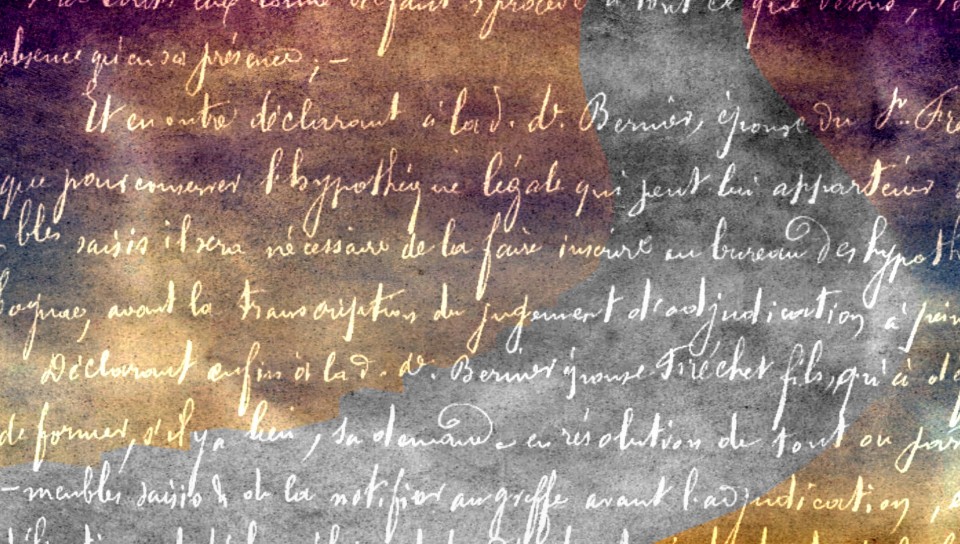 qui en sa présence ; —
Et en outre déclarant à la d. de. Bernier, épouse du Sr. Fré
que pour conserver l'hypothèque légale qui peut lui appartenir
bles saisis il sera nécessaire de la faire inscrire au bureau des hypoth
avant la transcription du jugement d'adjudication, à pein
Déclarant enfin à la d. de. Bernier épouse Fréchet fils, qu'à
de former, s'il y a lieu, sa demande en résolution de tout ou par
-meubles saisis & de la notifier au greffe avant l'adjudication,